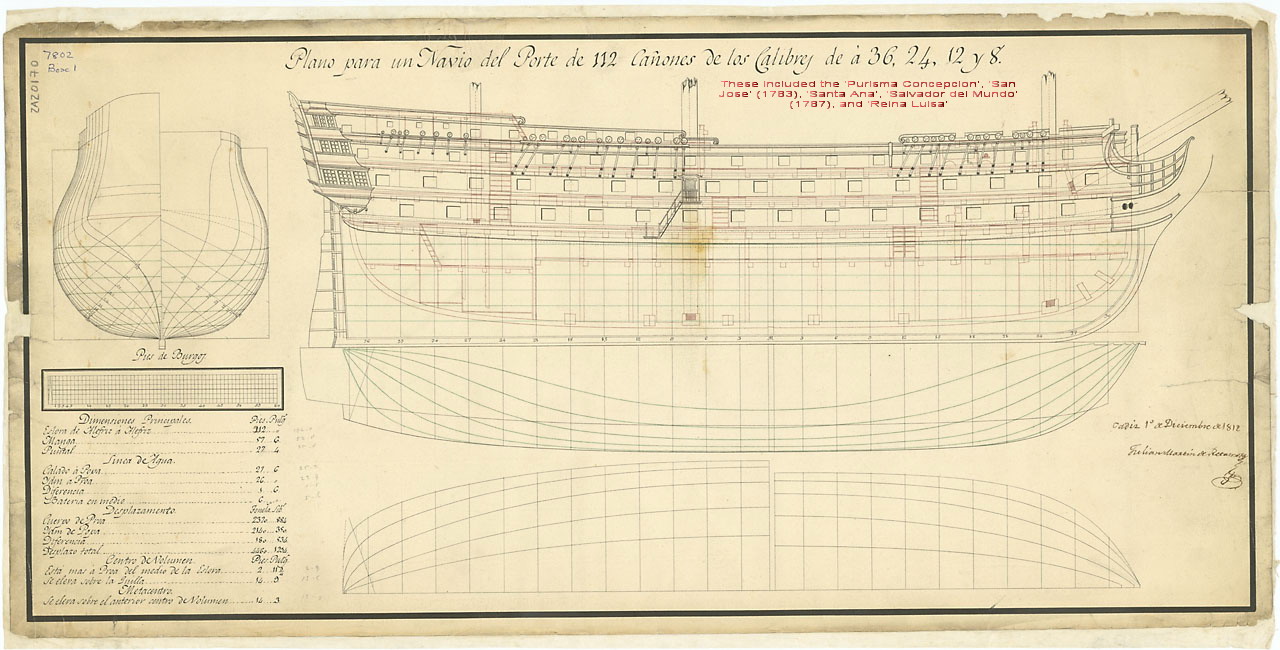 7802
Box 1
ZAZ0170
Plano para un Navio del Porte de 112 Cañones de los Calibres de à 36, 24, 12 y 8.
These included the 'Purisma Concepcion', 'San
Jose' (1783), 'Santa Ana', 'Salvador del Mundo'
(1787), and 'Reina Luisa'
Pies de Burgos
Dimensiones Principales. Pies. Pulg.
Eslora de Alefriz à Alefriz 212
Manga 57 6
Puntal 27 4
Linea de Agua.
Calado à Popa 27 6
Ydm à Proa 26
Diferencia 1 6
Bateria en medio 6
Desplazamento.
Cuerpo de Proa
Ydm de Popa
Diferencia
Desplazo total
Centro de Volumen Pies. Pulg.
Està mas à Proa del medio de la Eslora 2
Se eleva sobre la Quilla 14 9
Metacentro.
Se eleva sobre el anterior centro de Volumen 14 3
Cadiz 1º de Diciembre de 1812
Julian Martin de